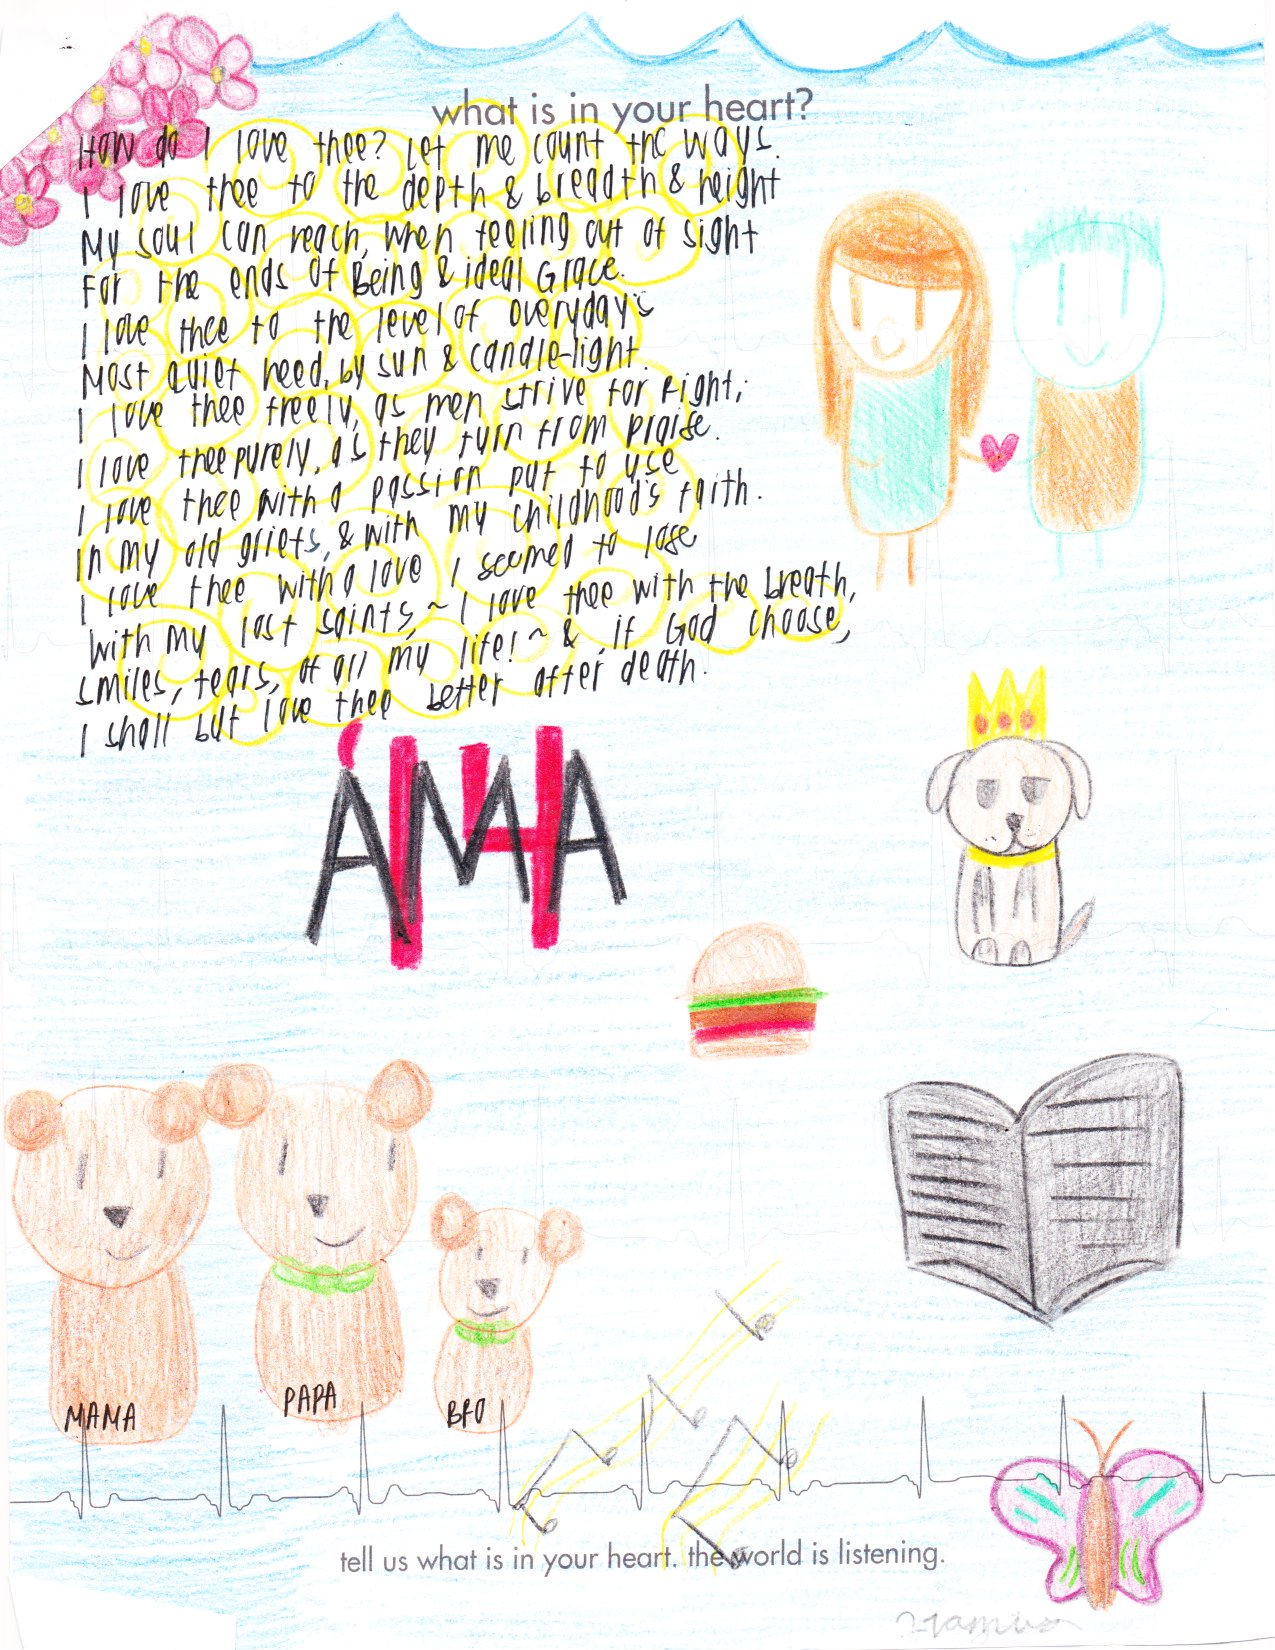 what is in your heart?
How do I love thee? Let me count the ways.
I love thee to the depth & breadth & height
My soul can reach, when feeling out of sight
For the ends of Being & ideal Grace.
I love thee to the level of everyday's
Most quiet need, by sun & candle-light.
I love thee freely, as men strive for Right;
I love thee purely, as they turn from Praise.
I love thee with a passion put to use
In my old griefs, & with my childhood's faith.
I love thee with a love I seemed to lose
With my lost saints, ~ I love thee with the breath,
Smiles, tears, of all my life! ~ & if God choose,
I shall but love thee better after death.
MAMA
PAPA
BRO
tell us what is in your heart. the world is listening.